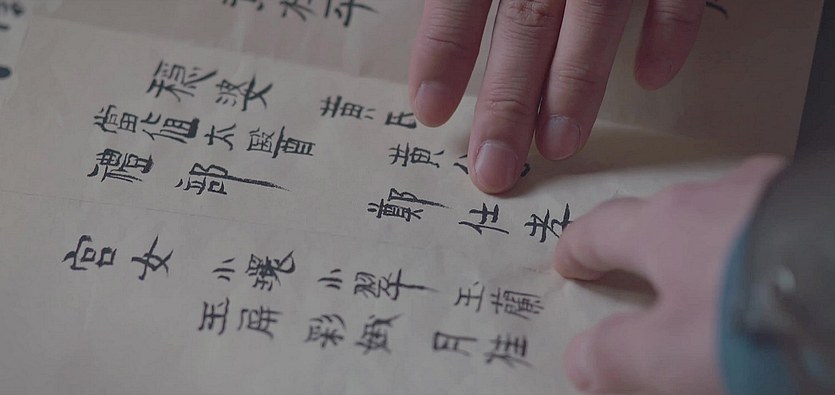 穩婆 黃氏
當值太醫 黃
禮部 鄭仕孝
宮女 小環 小翠 玉蘭
玉屏 彩娥 月桂